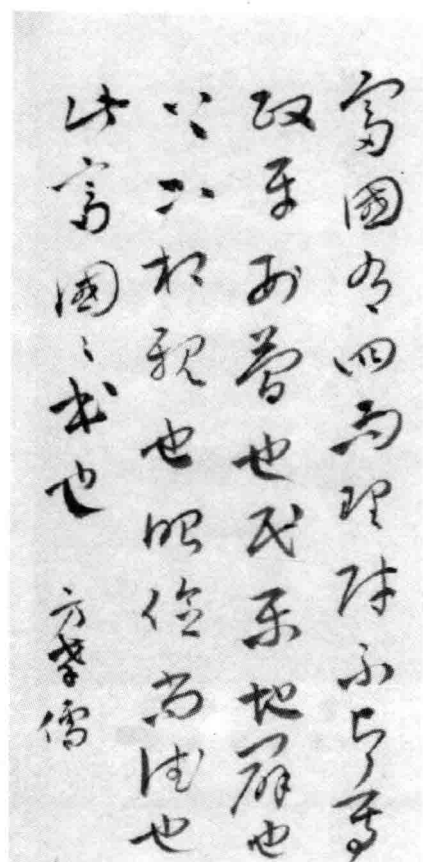 富國有四而理財不與焉
政平刑簡也民樂地闢也
上下相親也昭儉尚德也
此富國之本也 方孝孺